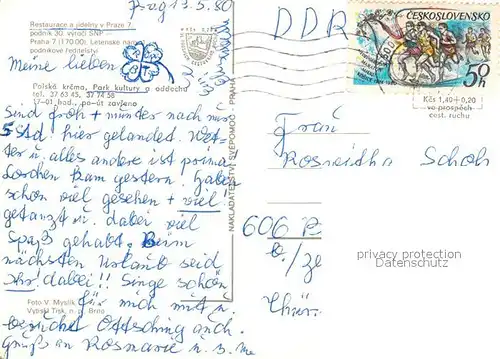 Prag 13.5.80
Restaurace a jídelny v Praze 7,
podnik 30. výročí SNP
Praha 7 (170 00), Letenské nám.
podnikové ředitelství
Meine lieben
Polská krčma, Park kultury a oddechu
tel. 37 63 45, 37 74 58
17-01 hod., po-út zavřeno
Sind froh + munter nach nur
5 Std hier gelandet. Wet-
ter u. alles andere ist prima
Lorchen kam gestern. Haben
schon viel gesehen + viel!
getanzt u. dabei viel
Spaß gehabt. Beim
nächsten Urlaub seid
Ihr! dabei!! Singe schön
für mich mit u.
Foto V. Myslík
Vytiskl Tisk, n. p., Brno
besucht Ottsching auch.
Gruß an Rosmarie u. s. m.
NAKLADATELSTVÍ SVÉPOMOC - PRAHA
DDR
ČESKOSLOVENSKO
50h
Kčs 1,40+0,20
ve prospěch
cest. ruchu
Frau
Roswitha Schoh
606 B
b./ze
Thür.
privacy protection
Datenschutz